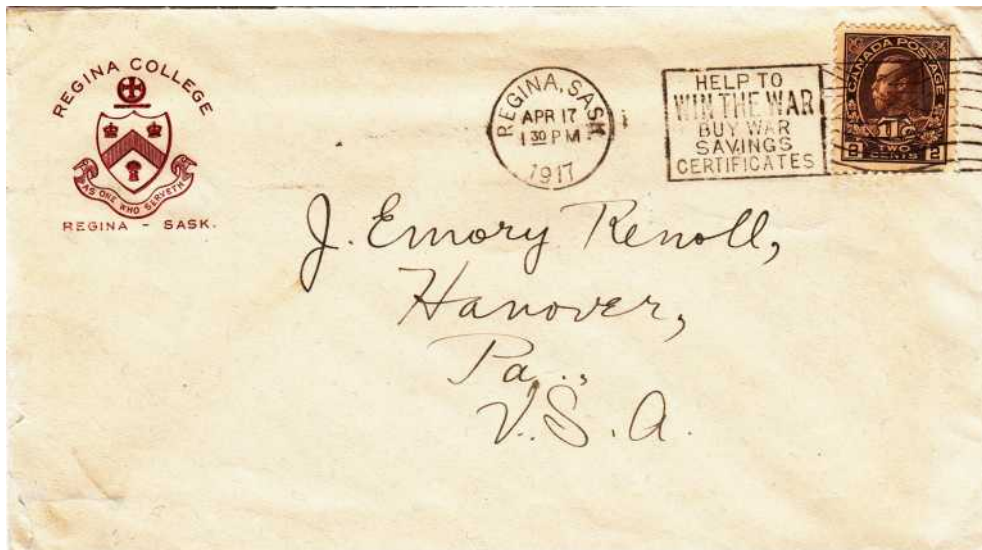 REGINA COLLEGE
AS ONE WHO SERVETH
REGINA - SASK.
REGINA, SASK.
APR 17
1 30 PM
1917
HELP TO
WIN THE WAR
BUY WAR
SAVINGS
CERTIFICATES
CANADA POSTAGE
1Tc
2 TWO CENTS 2
J. Emory Renoll,
Hanover,
Pa.,
U.S.A.